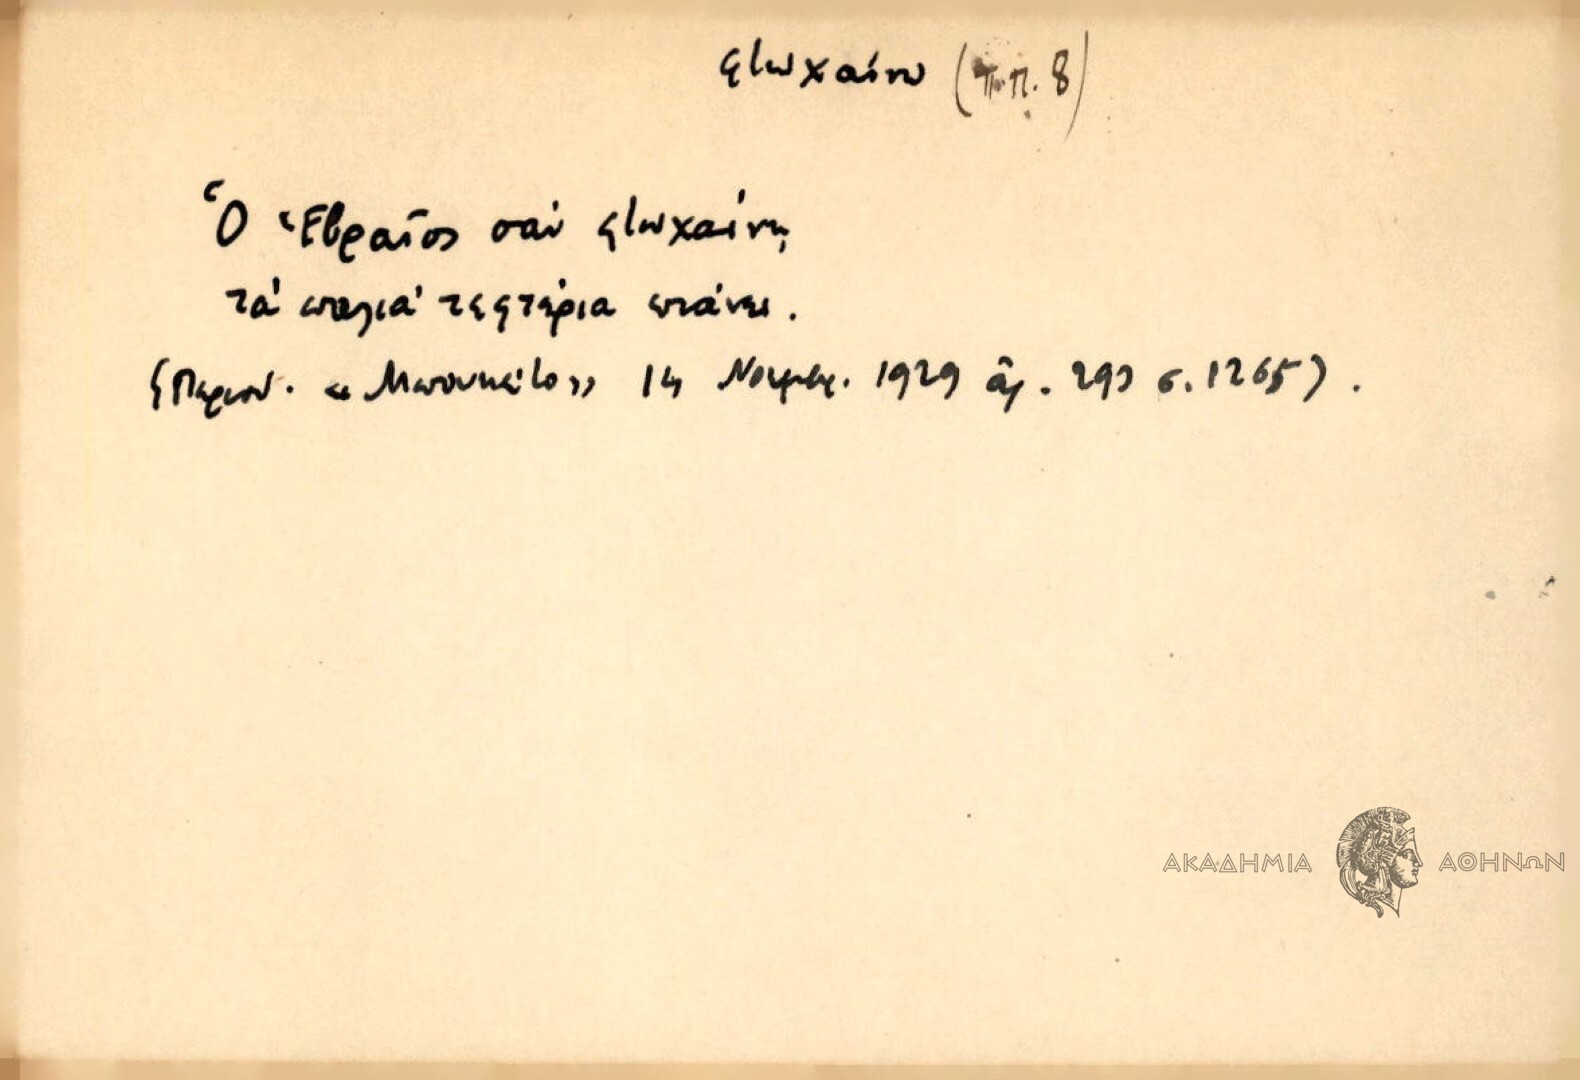 φτωχαίνω (Π.Π. 8)
Ὁ Ἑβραῖος σὰν φτωχαίνῃ
τὰ παλιὰ τεφτέρια πιάνει.
(Περιοδ. «Μπουκέτο» 14 Νοεμβρ. 1929 ἀρ. 293 σ. 1265).
ΑΚΑΔΗΜΙΑ ΑΘΗΝΩΝ